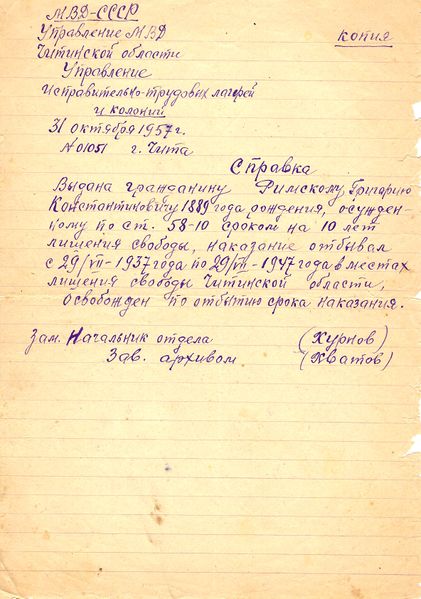 МВД-СССР
Управление МВД
копия
Читинской области
Управление
исправительно-трудовых лагерей
и колоний
31 октября 1957 г.
№ 01051 г. Чита
Справка
Выдана гражданину Римскому Григорию
Константиновичу 1889 года рождения, осужден-
ному по ст. 58-10 сроком на 10 лет
лишения свободы, наказание отбывал
с 29/VII-1937 года по 29/VII-1947 года в местах
лишения свободы Читинской области,
Освобожден по отбытию срока наказания.
Зам. Начальник отдела (Хурнов)
Зав. архивом (Хватов)